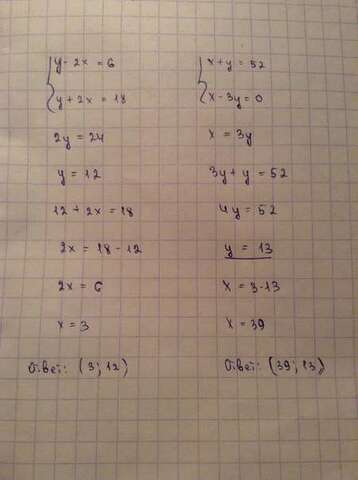 y - 2x = 6
y + 2x = 18
2y = 24
y = 12
12 + 2x = 18
2x = 18 - 12
2x = 6
x = 3
Ответ: (3; 12)
x + y = 52
x - 3y = 0
x = 3y
3y + y = 52
4y = 52
y = 13
x = 3·13
x = 39
Ответ: (39; 13)